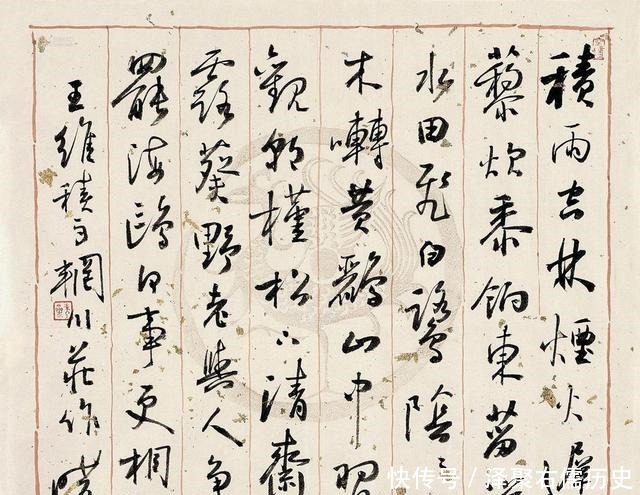 積雨空林煙火遲
藜炊黍餉東菑
水田飛白鷺陰〻
木囀黄鸝山中習
觀朝槿松下清齋
露葵野老與人爭
罷海鷗何事更相
王維積雨輞川莊作
快传号 / 泽聚右儒历史